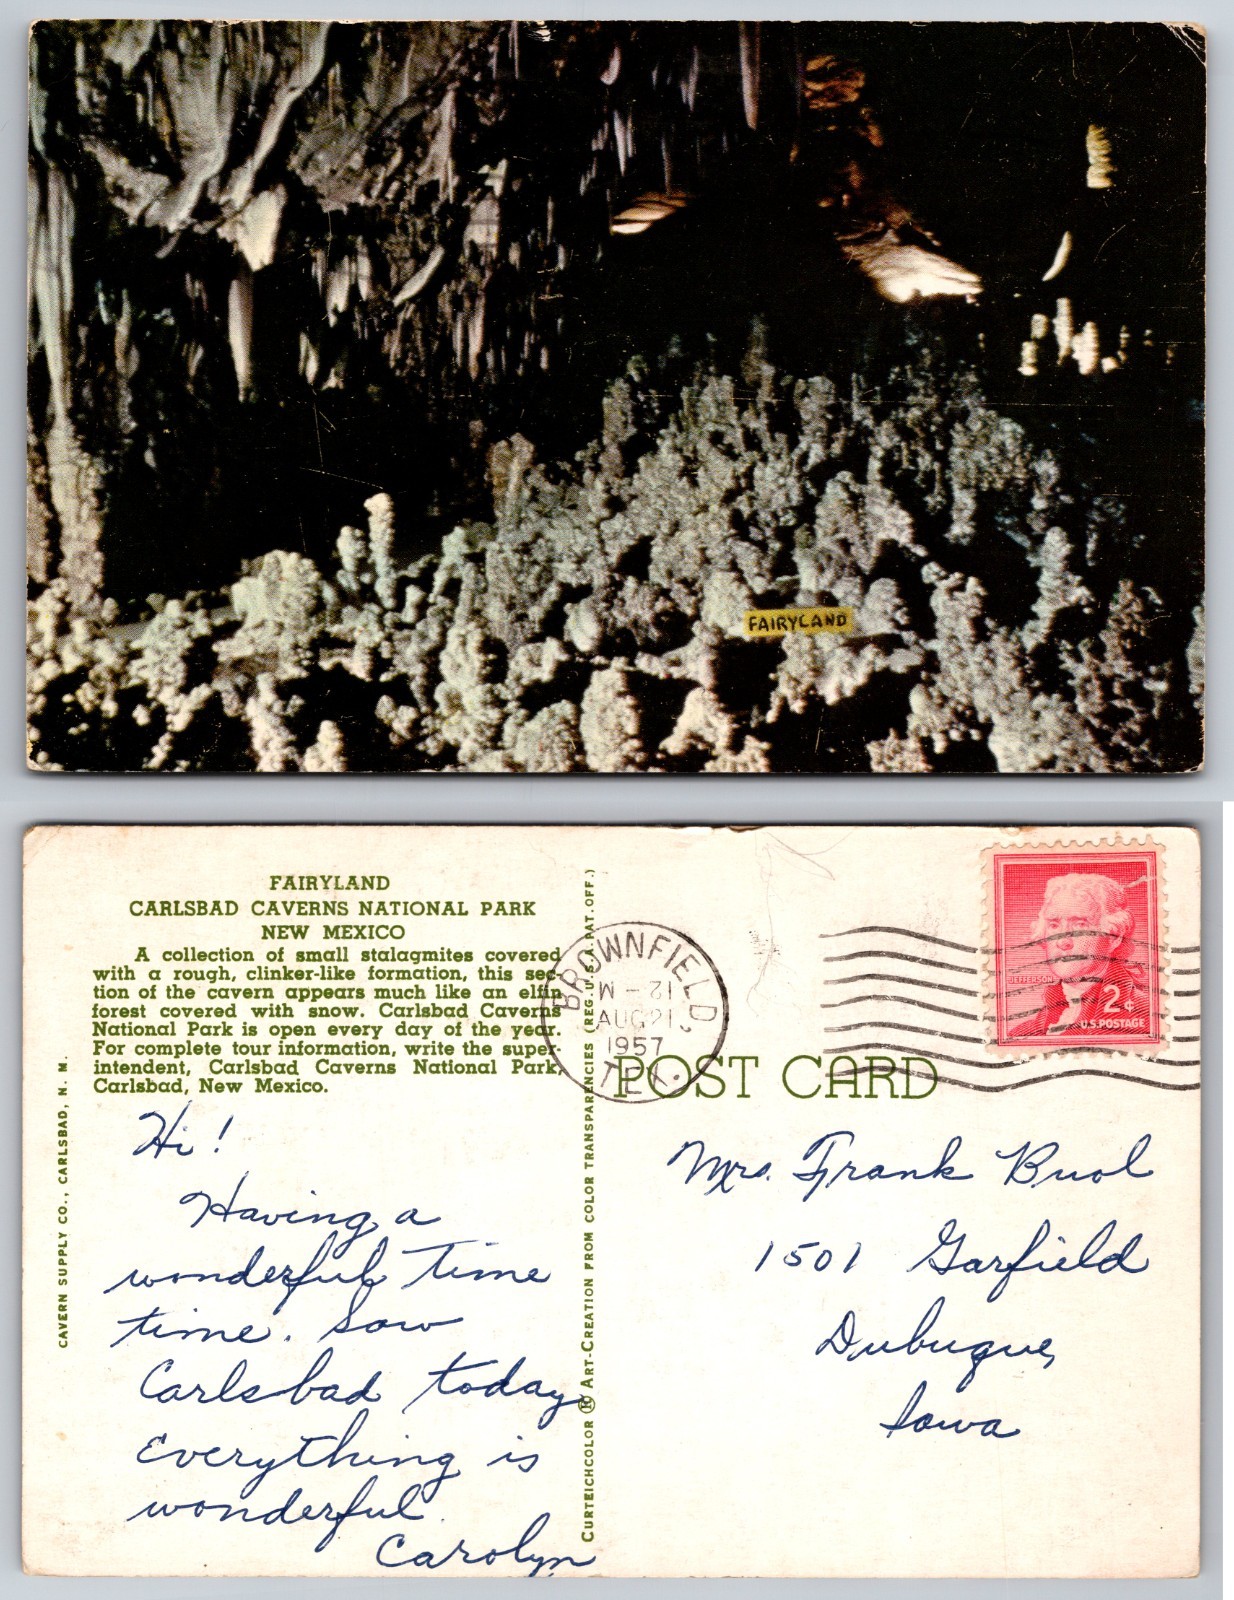 FAIRYLAND
FAIRYLAND
CARLSBAD CAVERNS NATIONAL PARK
NEW MEXICO
A collection of small stalagmites covered
with a rough, clinker-like formation, this sec-
tion of the cavern appears much like an elfin
forest covered with snow. Carlsbad Caverns
National Park is open every day of the year.
For complete tour information, write the super-
intendent, Carlsbad Caverns National Park,
Carlsbad, New Mexico.
CAVERN SUPPLY CO., CARLSBAD, N. M.
Hi!
Having a
wonderful time
time. Saw
Carlsbad today.
Everything is
wonderful.
Carolyn
CURTEICHCOLOR ® ART-CREATION FROM COLOR TRANSPARENCIES (REG. U.S.A. PAT. OFF.)
BROWNFIELD,
AUG 21
1957
TEX.
JEFFERSON
2¢
U.S. POSTAGE
POST CARD
Mrs. Frank Buol
1501 Garfield
Dubuque,
Iowa